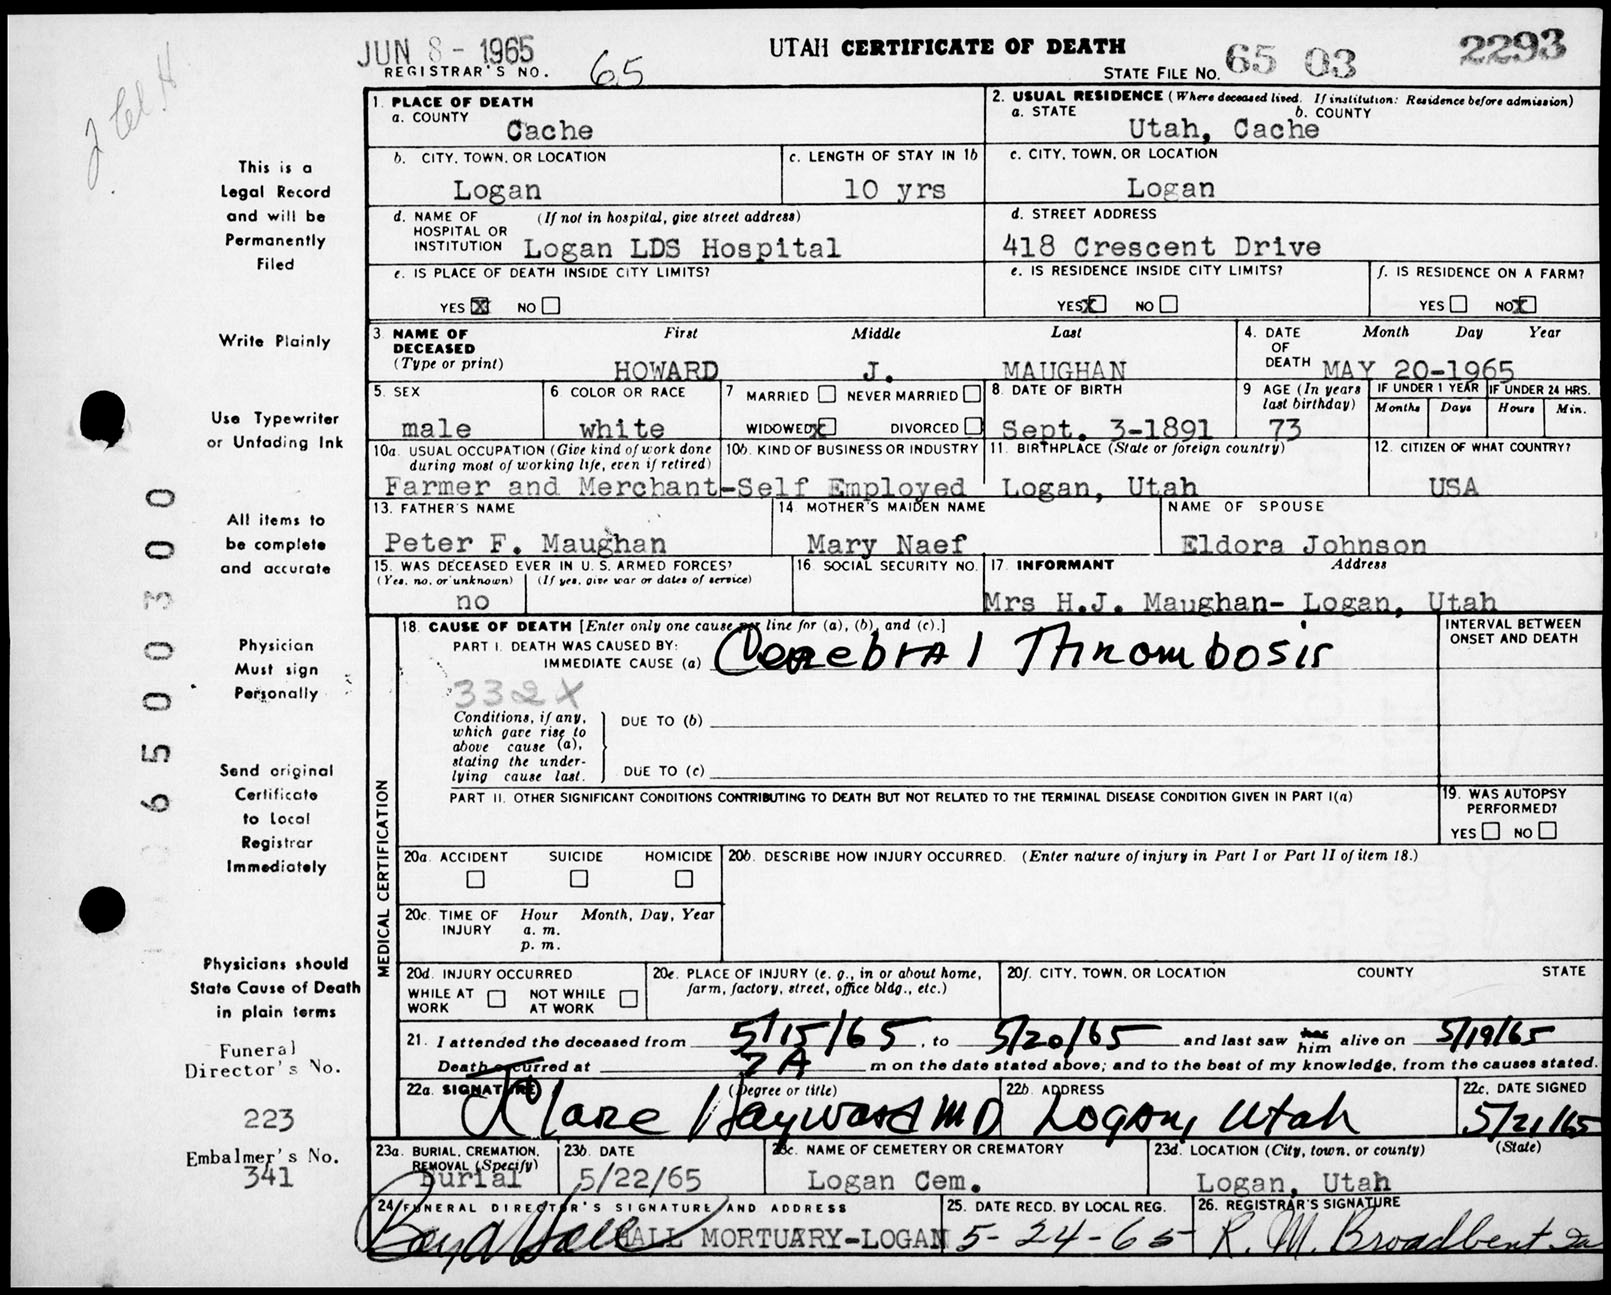 JUN 8 - 1965
REGISTRAR'S NO. 65
UTAH CERTIFICATE OF DEATH
STATE FILE NO. 65 03 2293
This is a
Legal Record
and will be
Permanently
Filed
Write Plainly
Use Typewriter
or Unfading Ink
All items to
be complete
and accurate
Physician
Must sign
Personally
Send original
Certificate
to Local
Registrar
Immediately
Physicians should
State Cause of Death
in plain terms
Funeral
Director's No.
223
Embalmer's No.
341
6 5 0 0 3 0 0
1. PLACE OF DEATH
a. COUNTY
Cache
2. USUAL RESIDENCE (Where deceased lived. If institution: Residence before admission)
a. STATE b. COUNTY
Utah, Cache
b. CITY, TOWN, OR LOCATION
Logan
c. LENGTH OF STAY IN 1b
10 yrs
c. CITY, TOWN, OR LOCATION
Logan
d. NAME OF (If not in hospital, give street address)
HOSPITAL OR
INSTITUTION Logan LDS Hospital
d. STREET ADDRESS
418 Crescent Drive
e. IS PLACE OF DEATH INSIDE CITY LIMITS?
YES X NO
e. IS RESIDENCE INSIDE CITY LIMITS?
YES X NO
f. IS RESIDENCE ON A FARM?
YES NO X
3 NAME OF DECEASED
(Type or print)
First Middle Last
HOWARD J. MAUGHAN
4. DATE OF DEATH
Month Day Year
MAY 20-1965
5. SEX
male
6 COLOR OR RACE
white
7 MARRIED NEVER MARRIED
WIDOWED X DIVORCED
8. DATE OF BIRTH
Sept. 3-1891
9 AGE (In years
last birthday)
73
IF UNDER 1 YEAR
Months Days
IF UNDER 24 HRS.
Hours Min.
10a. USUAL OCCUPATION (Give kind of work done
during most of working life, even if retired)
10b. KIND OF BUSINESS OR INDUSTRY
Farmer and Merchant-Self Employed
11. BIRTHPLACE (State or foreign country)
Logan, Utah
12. CITIZEN OF WHAT COUNTRY?
USA
13. FATHER'S NAME
Peter F. Maughan
14. MOTHER'S MAIDEN NAME
Mary Naef
NAME OF SPOUSE
Eldora Johnson
15. WAS DECEASED EVER IN U. S. ARMED FORCES?
(Yes, no, or unknown) (If yes, give war or dates of service)
no
16. SOCIAL SECURITY NO.
17. INFORMANT Address
Mrs H.J. Maughan- Logan, Utah
MEDICAL CERTIFICATION
18. CAUSE OF DEATH [Enter only one cause per line for (a), (b), and (c).]
PART I. DEATH WAS CAUSED BY:
IMMEDIATE CAUSE (a) Cerebral Thrombosis
INTERVAL BETWEEN
ONSET AND DEATH
332X
Conditions, if any,
which gave rise to
above cause (a),
stating the under-
lying cause last.
DUE TO (b)
DUE TO (c)
PART II. OTHER SIGNIFICANT CONDITIONS CONTRIBUTING TO DEATH BUT NOT RELATED TO THE TERMINAL DISEASE CONDITION GIVEN IN PART I(a)
19. WAS AUTOPSY
PERFORMED?
YES NO
20a. ACCIDENT SUICIDE HOMICIDE
20b. DESCRIBE HOW INJURY OCCURRED. (Enter nature of injury in Part I or Part II of item 18.)
20c. TIME OF INJURY
Hour Month, Day, Year
a. m.
p. m.
20d. INJURY OCCURRED
WHILE AT WORK NOT WHILE AT WORK
20e. PLACE OF INJURY (e. g., in or about home,
farm, factory, street, office bldg., etc.)
20f. CITY, TOWN, OR LOCATION COUNTY STATE
21. I attended the deceased from 5/15/65, to 5/20/65 and last saw her him alive on 5/19/65
Death occurred at 7 A m on the date stated above; and to the best of my knowledge, from the causes stated.
22a. SIGNATURE (Degree or title)
J Clare Hayward MD
22b. ADDRESS
Logan, Utah
22c. DATE SIGNED
5/21/65
23a. BURIAL, CREMATION,
REMOVAL (Specify)
Burial
23b. DATE
5/22/65
23c. NAME OF CEMETERY OR CREMATORY
Logan Cem.
23d. LOCATION (City, town, or county) (State)
Logan, Utah
24 FUNERAL DIRECTOR'S SIGNATURE AND ADDRESS
Boyd Hall HALL MORTUARY-LOGAN
25. DATE RECD. BY LOCAL REG.
5-24-65
26. REGISTRAR'S SIGNATURE
R. M. Broadbent